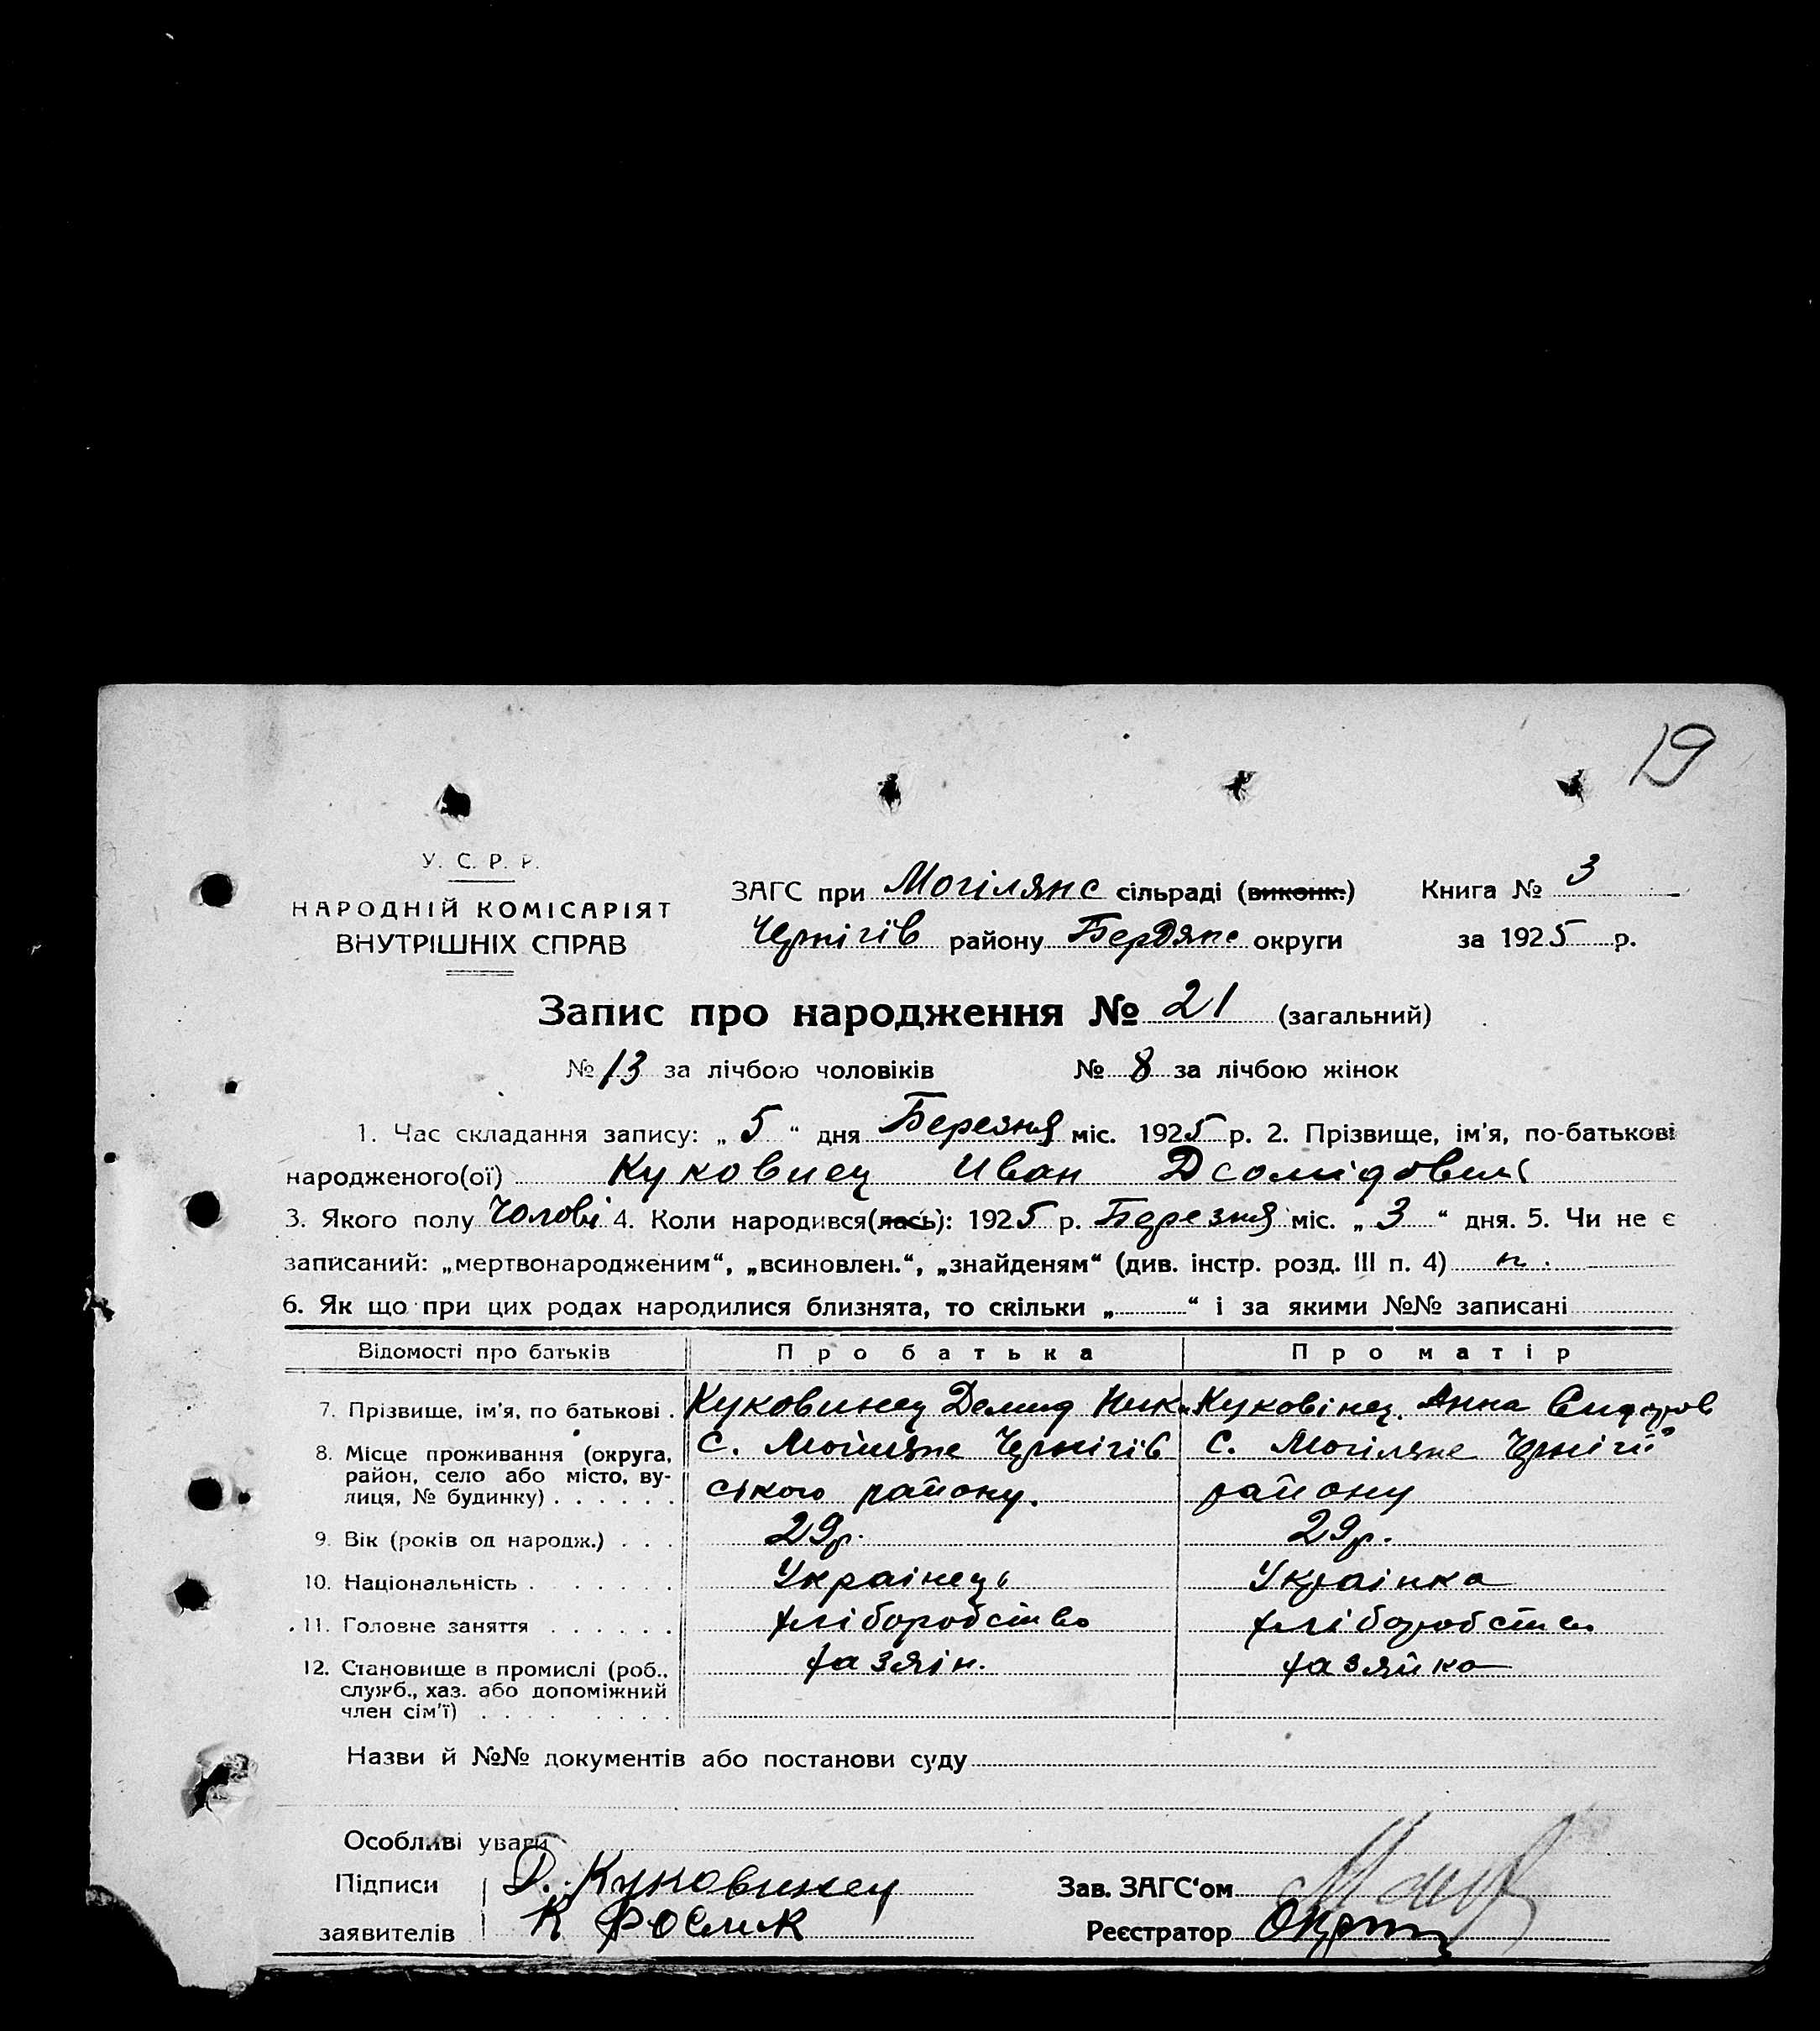 19
У. С. Р. Р.
НАРОДНІЙ КОМІСАРІЯТ
ВНУТРІШНІХ СПРАВ
ЗАГС при Могілянс сільраді (виконк.) Книга № 3
Чернігів району Бердянс округи за 1925 р.
Запис про народження № 21 (загальний)
№ 13 за лічбою чоловіків № 8 за лічбою жінок
1. Час складання запису: „ 5 “ дня Березня міс. 1925 р. 2. Прізвище, ім'я, по-батькові
народженого(ої) Куковинец Иван
3. Якого полу Чолові 4. Коли народився(лась): 1925 р. Березня міс. „ 3 “ дня. 5. Чи не є
записаний: „мертвонародженим“, „всиновлен.“, „знайденям“ (див. інстр. розд. III п. 4) н.
6. Як що при цих родах народилися близнята, то скільки „ “ і за якими №№ записані
Відомості про батьків Про батька Про матір
7. Прізвище, ім'я, по батькові . Куковинец Демид Ник. Куковінец. Анна Сидоров
8. Місце проживання (округа, с. Могиляне Чернігів с. Могіляне Чернігів
район, село або місто, ву-
лиця, № будинку) . . . . . . ського району. району
9. Вік (років од народж.) . . . 29р. 29р.
10. Національність . . . . . . . Украінець Украінка
11. Головне заняття . . . . . . хліборобство хліборобство
12. Становище в промислі (роб., хазяін. хазяйка
служб., хаз. або допоміжний
член сім'ї) . . . . . . . . .
Назви й №№ документів або постанови суду
Особливі уваги
Підписи Д. Куковинец Зав. ЗАГС‘ом
заявителів К Реєстратор